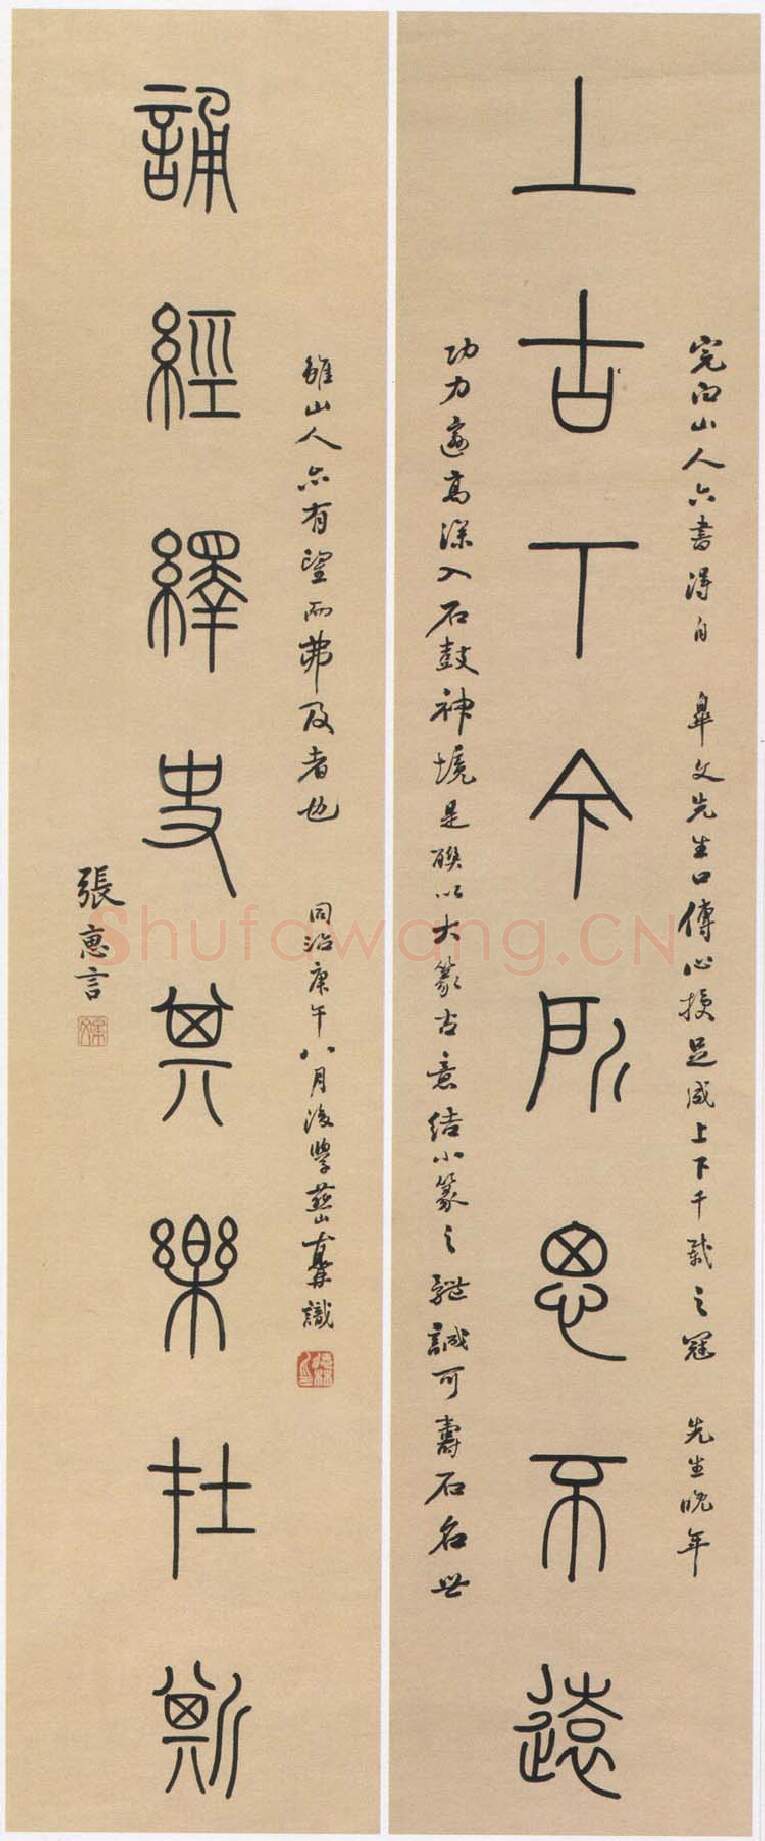 上古下今所思不遠
完白山人六書得自 皋文先生口傳心授足成上下千載之冠 先生晚年
功力邃高深入石鼓神境是聯以大篆古意結小篆之體誠可壽石名世
誦經繹史其樂在斯
雖山人亦有望而弗及者也 同治庚午八月後學
識
張惠言
Shufawang.CN